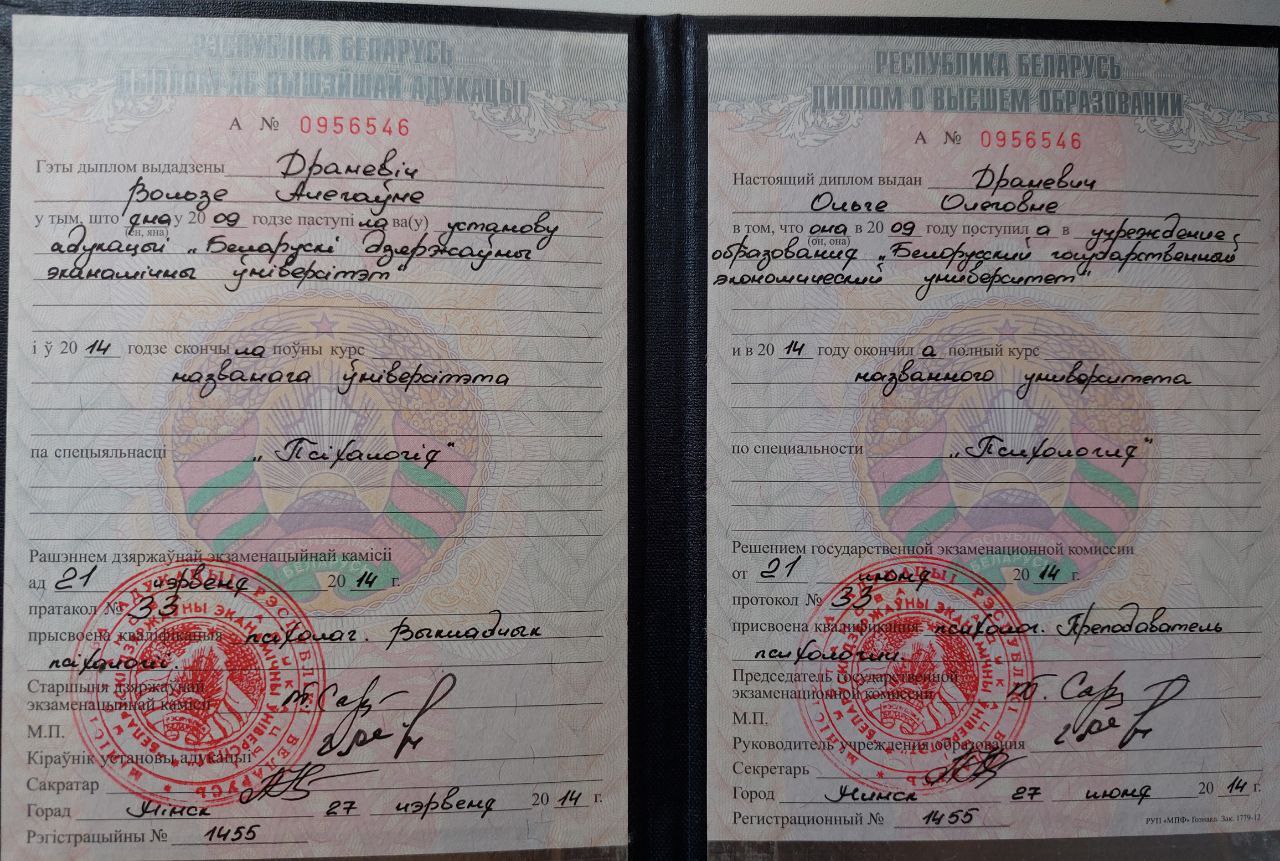 РЭСПУБЛІКА БЕЛАРУСЬ
ДЫПЛОМ АБ ВЫШЭЙШАЙ АДУКАЦЫІ
А № 0956546
Гэты дыплом выдадзены Драневіч
Вользе Алегаўне
у тым, што яна у 20 09 годзе паступі ла ва(у) установу
(ён, яна)
адукацыі „Беларускі дзяржаўны
эканамічны ўніверсітэт“
і ў 20 14 годзе скончы ла поўны курс
названага ўніверсітэта
па спецыяльнасці „Псіхалогія“
Рашэннем дзяржаўнай экзаменацыйнай камісіі
ад 21 чэрвеня 20 14 г.
пратакол № 33
прысвоена кваліфікацыя псіхолаг. Выкладчык
псіхалогіі.
Старшыня дзяржаўнай
экзаменацыйнай камісіі
М.П.
Кіраўнік установы адукацыі
Сакратар
Горад Мінск 27 чэрвеня 20 14 г.
Рэгістрацыйны № 1455
РЕСПУБЛИКА БЕЛАРУСЬ
ДИПЛОМ О ВЫСШЕМ ОБРАЗОВАНИИ
А № 0956546
Настоящий диплом выдан Драневич
Ольге Олеговне
в том, что она в 20 09 году поступил а в учреждение
(он, она)
образования „Белорусский государственный
экономический университет“
и в 20 14 году окончил а полный курс
названного университета
по специальности „Психология“
Решением государственной экзаменационной комиссии
от 21 июня 20 14 г.
протокол № 33
присвоена квалификация психолог. Преподаватель
психологии.
Председатель государственной
экзаменационной комиссии
М.П.
Руководитель учреждения образования
Секретарь
Город Минск 27 июня 20 14 г.
Регистрационный № 1455
РУП «МПФ» Гознака. Зак. 1779-12